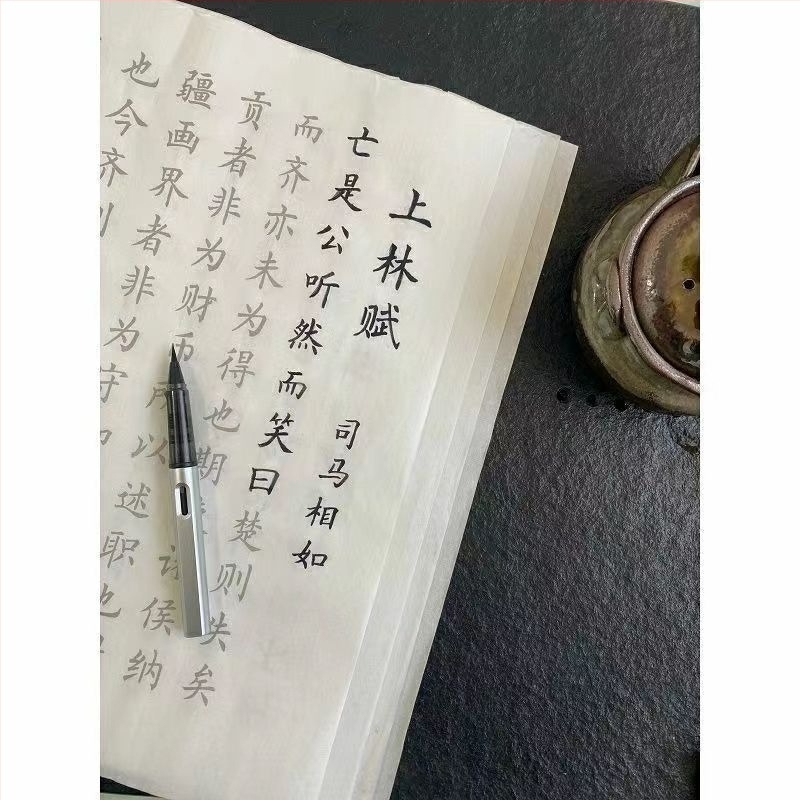 上林赋
司马相如
亡是公听然而笑曰楚则失矣
而齐亦未为得也期诸侯纳
贡者非为财币所以述职也
疆画界者非为守
也今齐